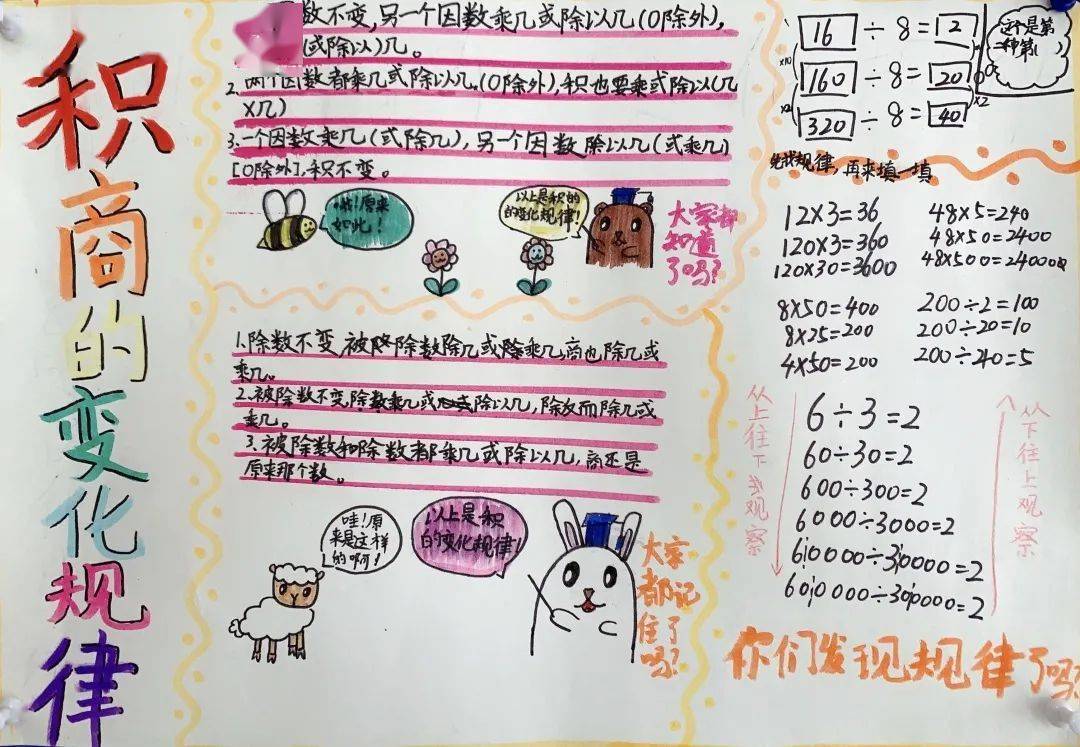 积商的变化规律
数不变,另一个因数乘几或除以几(0除外),
(或除以)几。
2.两个因数都乘几或除以几(0除外),积也要乘或除以(几
×几)
3.一个因数乘几(或除几),另一个因数除以几(或乘几)
[0除外],积不变。
哇!原来
如此!
以上是积的
的变化规律!
大家都
知道
了吗?
1.除数不变,被除数除几或乘几,商也除几或
乘几。
2.被除数不变,除数乘几或除以几,除反而除几或
乘几。
3.被除数和除数都乘几或除以几,商还是
原来那个数。
哇!原
来是这样
的啊!
以上是积
的变化规律!
大家
都记
住了
吗?
16÷8=2
160÷8=20
320÷8=40
×10
×2
×2
这个是第
二种第1
先找规律,再来填一填
12×3=36
120×3=360
120×30=3600
48×5=240
48×50=2400
48×500=24000
8×50=400
8×25=200
4×50=200
200÷2=100
200÷20=10
200÷40=5
从上往下我观察
6÷3=2
60÷30=2
600÷300=2
6000÷3000=2
60000÷30000=2
600000÷300000=2
从下往上观察
你们发现规律了吗?